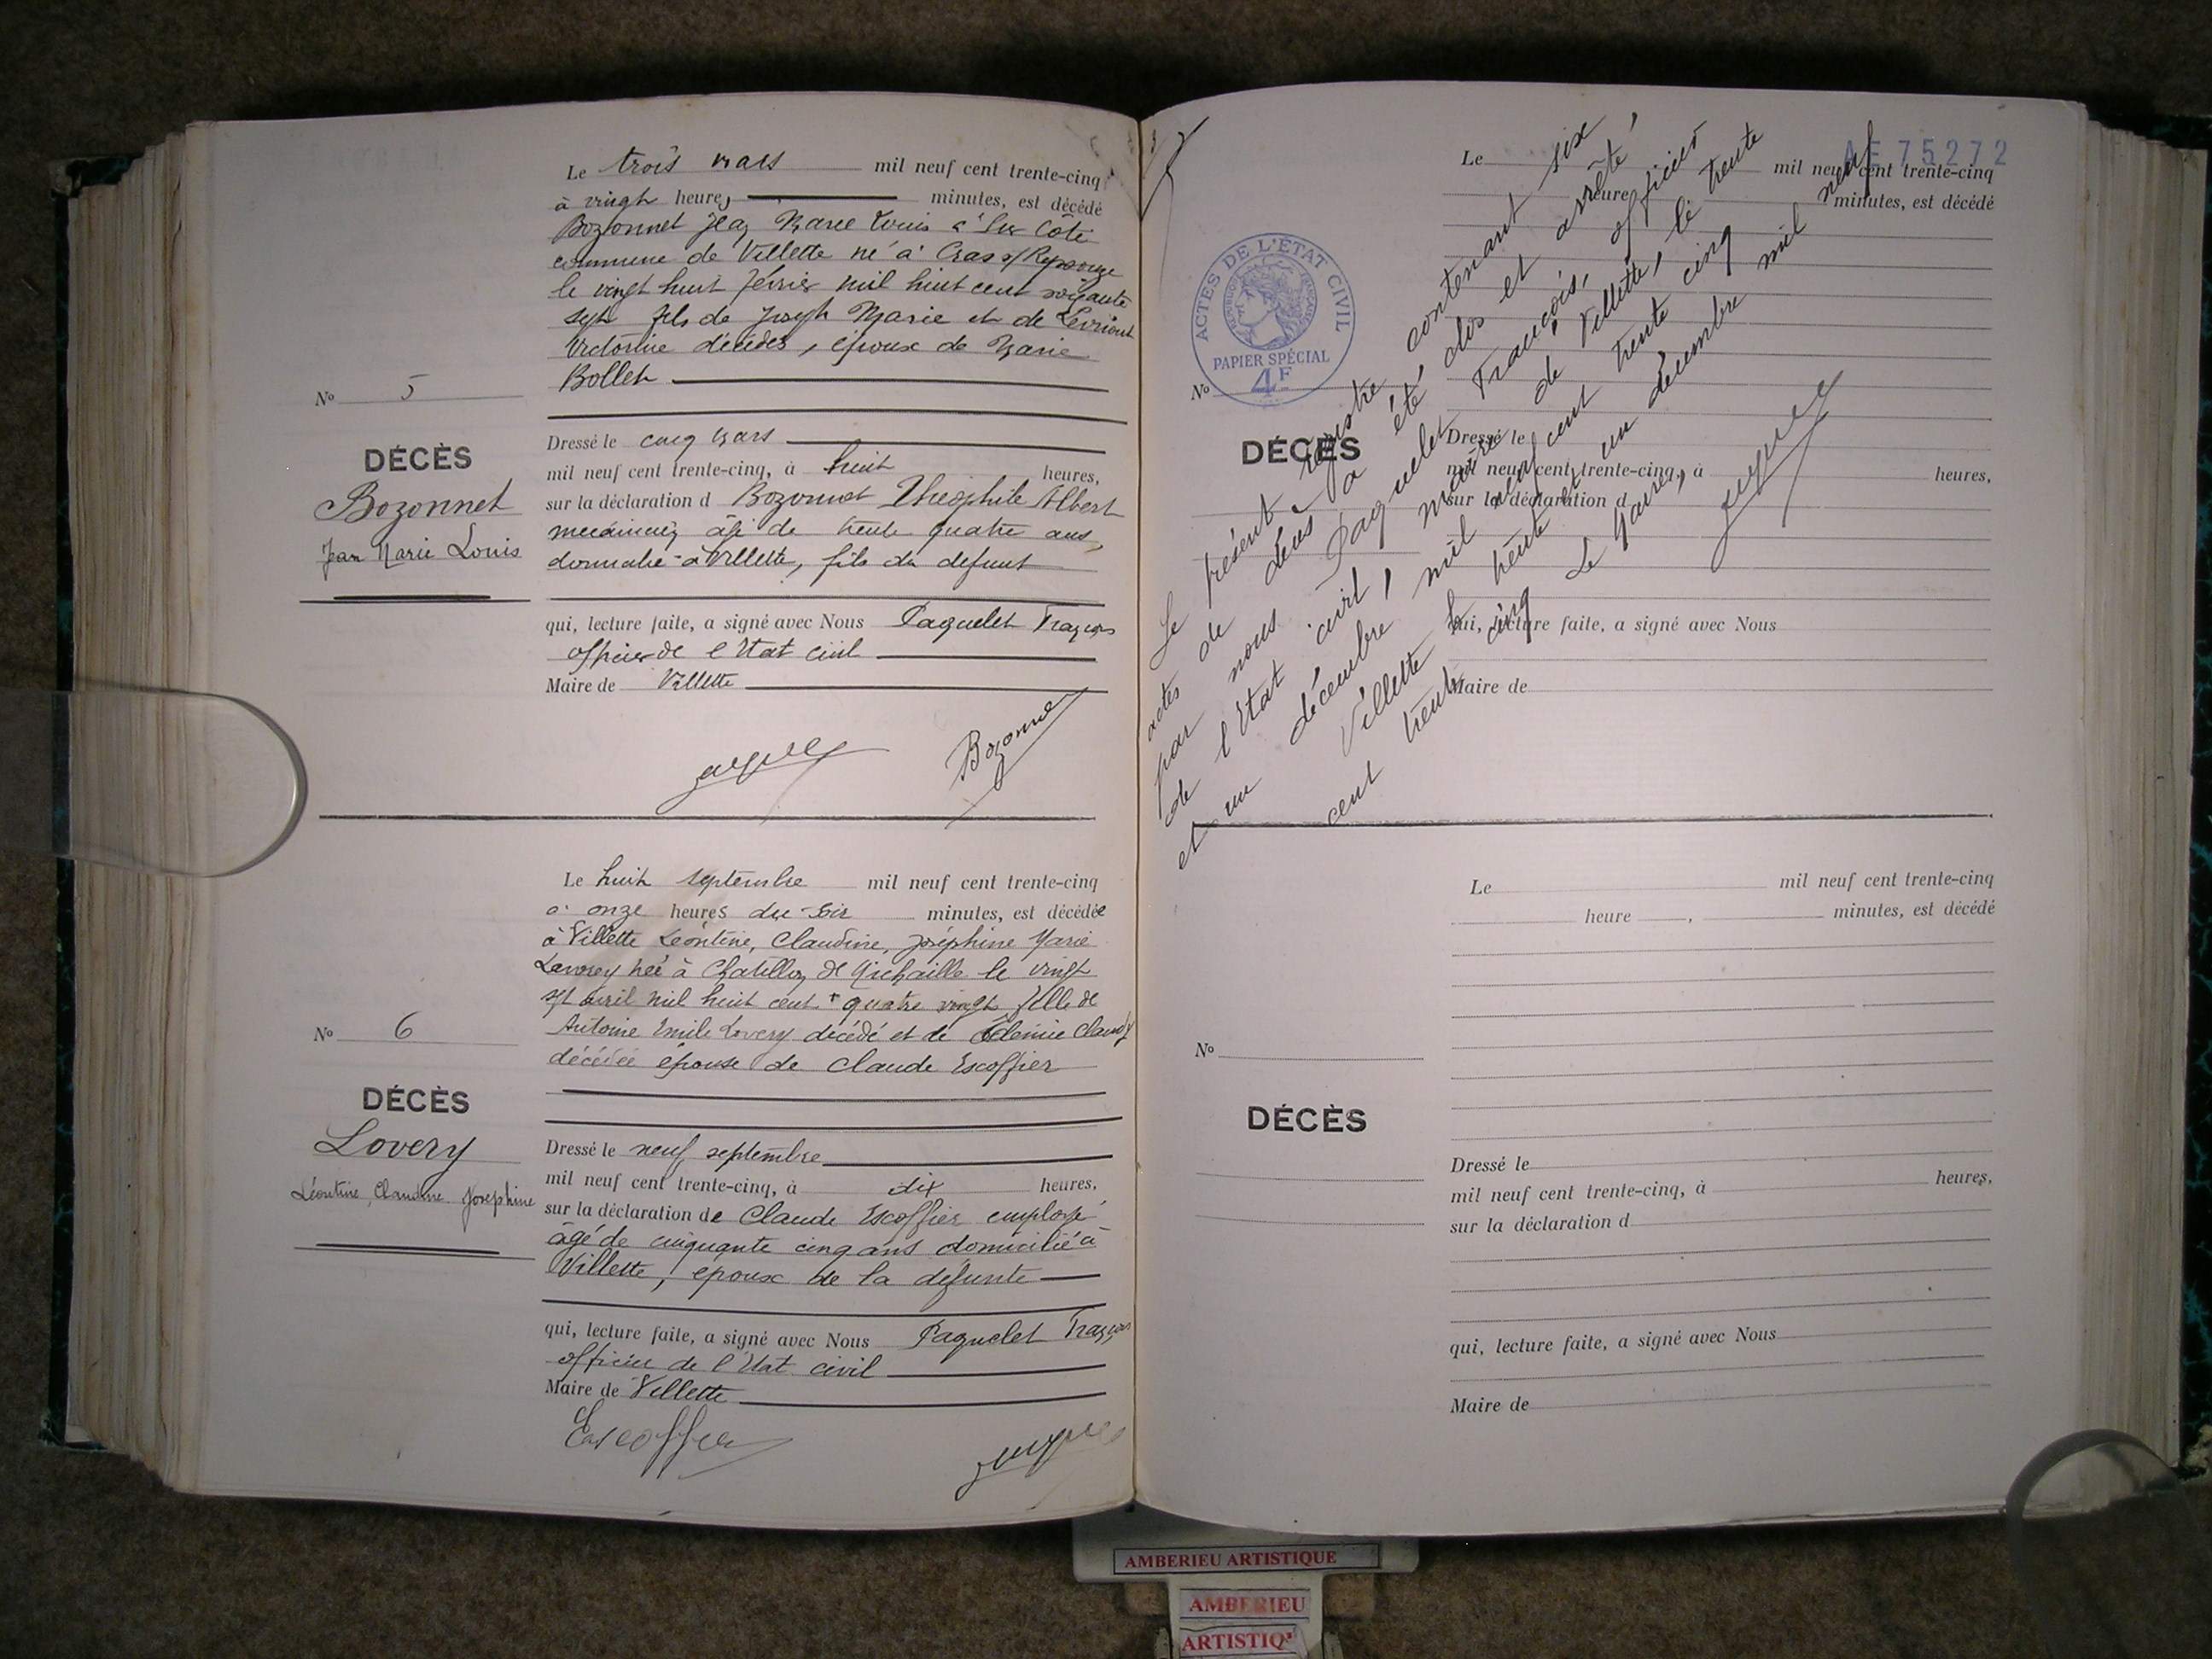 Le trois mars mil neuf cent trente-cinq
à vingt heures minutes, est décédé
Bozonnet Jean Marie Louis à Sur Côte
commune de Villette né à Cras s/ Reyssouze
le vingt huit février mil huit cent soixante
sept fils de Joseph Marie et de
Victorine décédés, époux de Marie
Bollet
No 5
DÉCÈS
Bozonnet
Jean Marie Louis
Dressé le cinq mars
mil neuf cent trente-cinq, à huit heures,
sur la déclaration d Bozonnet Théophile Albert
mécanicien âgé de trente quatre ans,
domicilié à Villette, fils du défunt
qui, lecture faite, a signé avec Nous Paquelet François
officier de l'Etat civil
Maire de Villette
Bozonnet
Le huit septembre mil neuf cent trente-cinq
à onze heures du soir minutes, est décédée
à Villette Léontine, Claudine, Joséphine Marie
née à Chatillon de Michaille le vingt
sept avril mil huit cent quatre vingt fille de
Antoine Emile Lovery décédé et de
décédée épouse de Claude Escoffier
No 6
DÉCÈS
Lovery
Léontine, Claudine Joséphine
Dressé le neuf septembre
mil neuf cent trente-cinq, à dix heures,
sur la déclaration de Claude Escoffier employé
âgé de cinquante cinq ans domicilié à
Villette, époux de la défunte
qui, lecture faite, a signé avec Nous Paquelet François
officier de l'Etat civil
Maire de Villette
Escoffier
AE 75272
ACTES DE L'ETAT CIVIL
REPUBLIQUE FRANÇAISE
PAPIER SPÉCIAL
4F
Le présent registre contenant six
actes de décès a été clos et arrêté
par nous Paquelet François, officier
de l'Etat civil, maire de Villette, le trente
et un décembre mil neuf cent trente cinq
Villette le trente et un décembre mil neuf
cent trente cinq
Le Maire,
Le mil neuf cent trente-cinq
heure minutes, est décédé
No
DÉCÈS
Dressé le
mil neuf cent trente-cinq, à heures,
sur la déclaration d
qui, lecture faite, a signé avec Nous
Maire de
Le mil neuf cent trente-cinq
heure , minutes, est décédé
No
DÉCÈS
Dressé le
mil neuf cent trente-cinq, à heures,
sur la déclaration d
qui, lecture faite, a signé avec Nous
Maire de
AMBERIEU ARTISTIQUE
AMBERIEU
ARTISTIQ